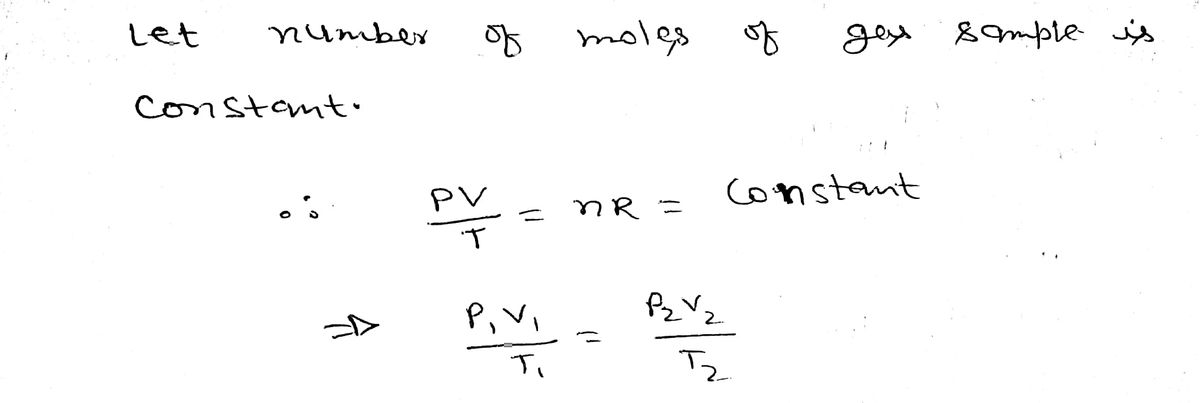 Let number of moles of gas sample is
Constant.
∴ PV/T = nR = Constant
⇒ P₁V₁/T₁ = P₂V₂/T₂